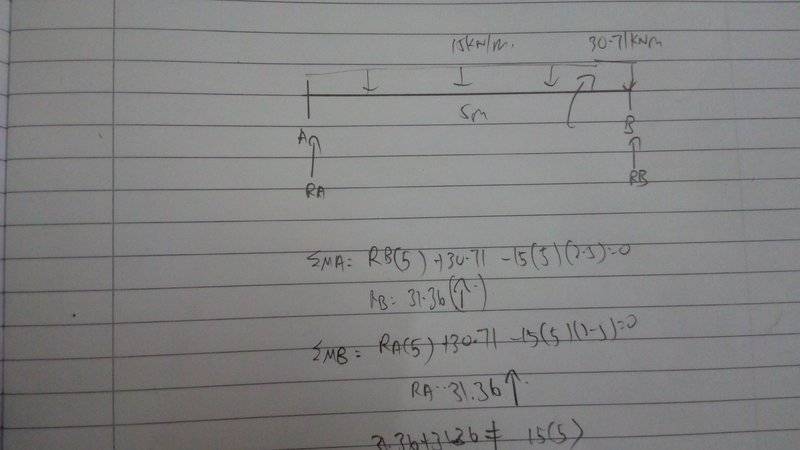 15KN/m. 30.71KNm
5m
A B
RA RB
ΣMA= RB(5) +30.71 -15(5)(2.5)=0
RB= 31.36(↑)
ΣMB= RA(5) +30.71 -15(5)(2.5)=0
RA= 31.36↑
31.36+31.36 ≠ 15(5)